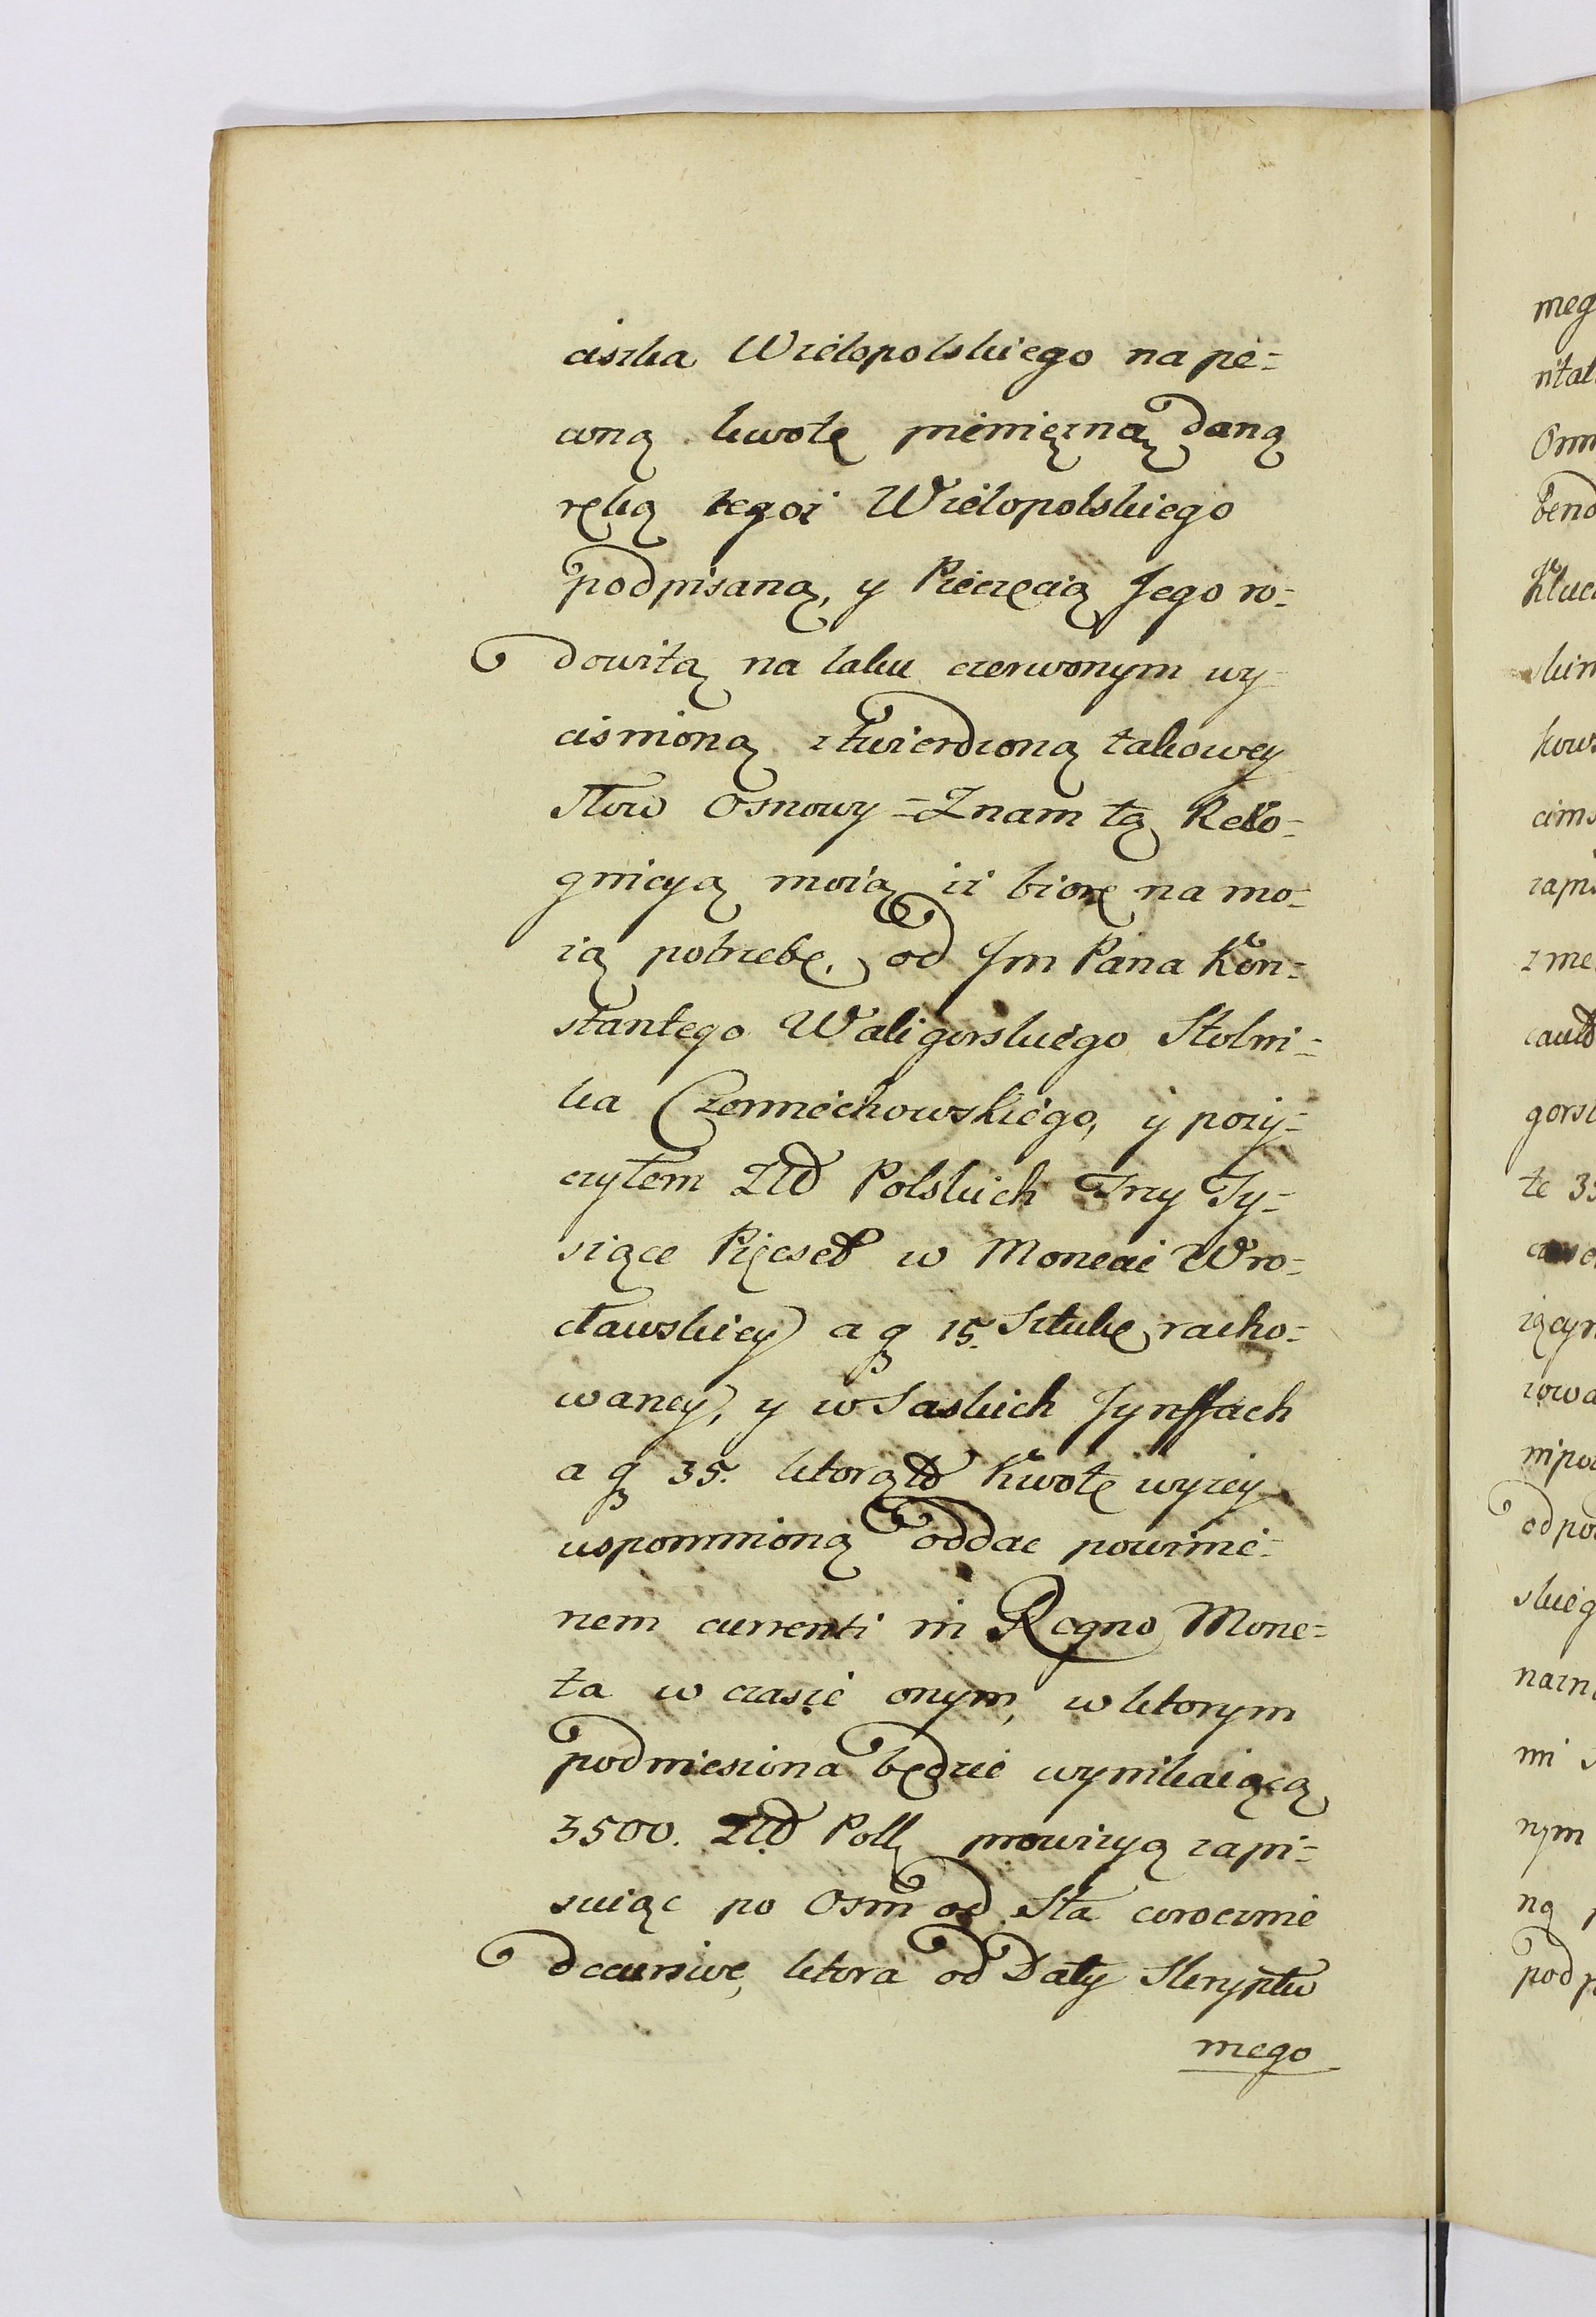 ciszka Wielopolskiego na pe=
wną kwotę pienięzną daną
ręką tegoz Wielopolskiego
podpisaną, y Pieczęcią Jego ro=
dowitą na laku czerwonym wy
cisnioną ztwierdzoną takowey
Słow Osnowy = Znam tą Reko=
gnicyą moią iz biorę na mo=
ią potrzebę, od Jm Pana Kon=
stantego Waligorskiego Stolni=
ka Czerniechowskiego, y pozy=
czyłem Złd Polskich Trzy Ty=
siące Pięcset w Monecie Wro=
cławskiey a g 15. Sztukę racho=
waney, y w Saskich Tynffach
a g 35. ktorą td Kwotę wyzey
wspomnioną oddac powinie=
nem currenti in Regno Mone=
ta w czasie onym, w ktorym
podniesiona będzie wynikaiącą
3500. Złd Poll prowizyą zapi=
suiąc po Osm od Sta corocznie
decursive, ktora od Daty Skryptu
mego
meg
ntal
Omn
bend
Kluc
skim
kows
cims
zapi
zme
cautd
gors
te 35
iącyn
zowa
nipo
odpo
skieg
nazn
mi s
nym
ną p
pod p